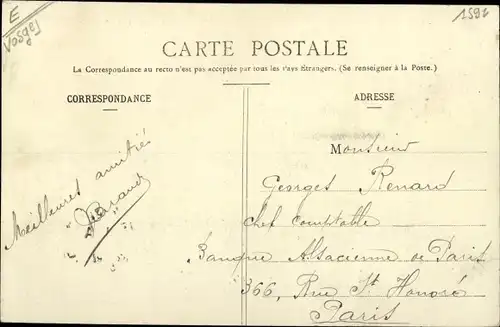 E
Vosges
1591
CARTE POSTALE
La Correspondance au recto n'est pas acceptée par tous les Pays Étrangers. (Se renseigner à la Poste.)
CORRESPONDANCE
ADRESSE
Meilleures amitiés
Monsieur
Georges Renard
chef comptable
Banque Alsacienne de Paris
366, Rue St Honoré
Paris